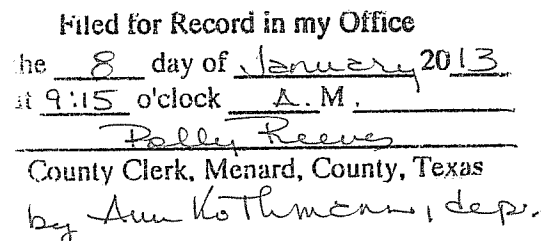 Filed for Record in my Office
he 8 day of January 2013
at 9:15 o'clock A.M.
Polly Reeves
County Clerk, Menard, County, Texas
by Ann Kothmann, dep.